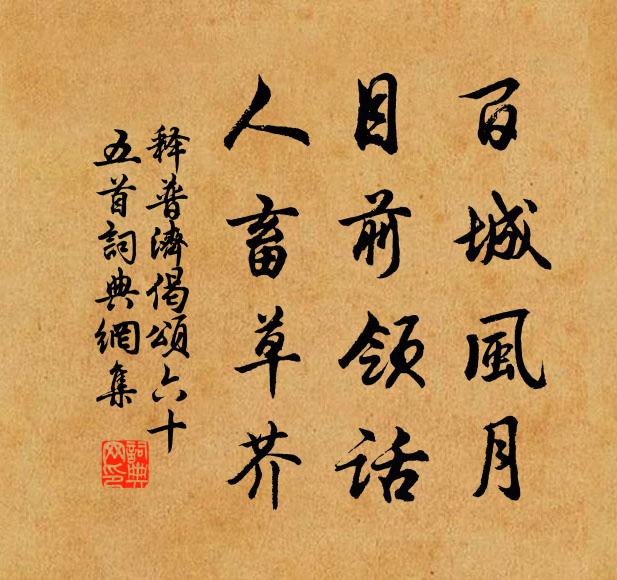 百城風月
目前領話
人畜草芥
释普濟偈頌六十
五首詞典網集
詞典
网印